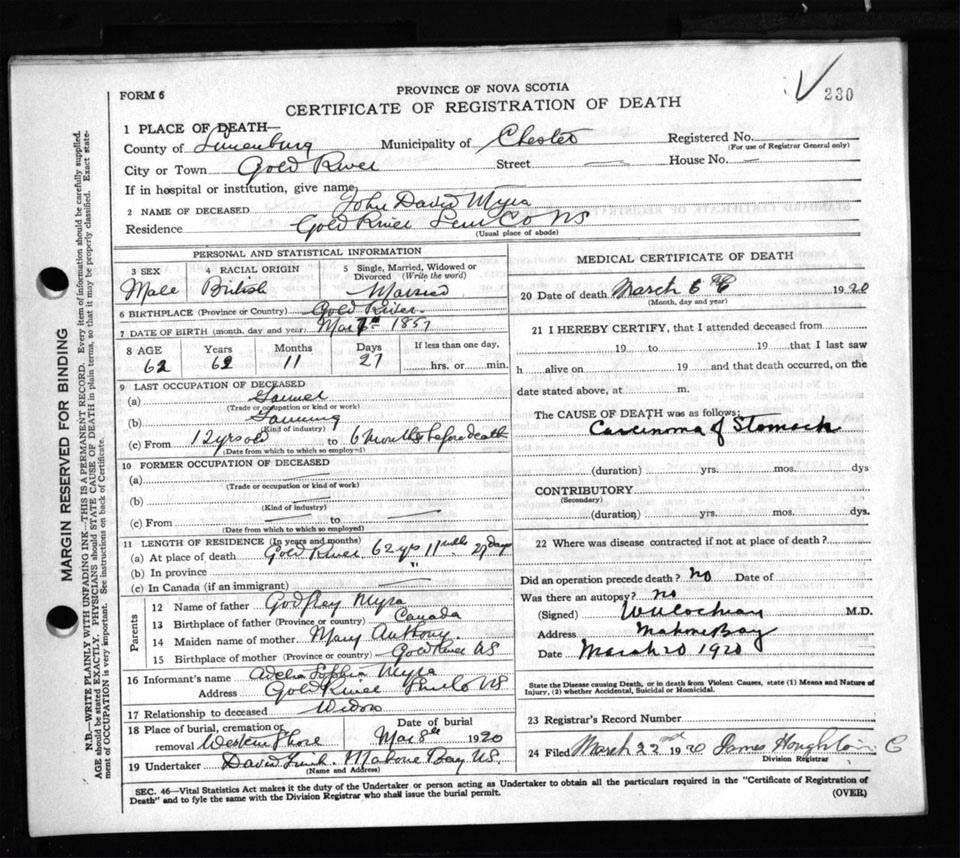 230
FORM 6
PROVINCE OF NOVA SCOTIA
CERTIFICATE OF REGISTRATION OF DEATH
MARGIN RESERVED FOR BINDING
N.B.—WRITE PLAINLY WITH UNFADING INK—THIS IS A PERMANENT RECORD. Every item of information should be carefully supplied.
AGE should be stated EXACTLY. PHYSICIANS should STATE CAUSE OF DEATH in plain terms, so that it may be properly classified. Exact state-
ment of OCCUPATION is very important. See instructions on back of Certificate.
1 PLACE OF DEATH—
County of Lunenburg Municipality of Chester Registered No.
(For use of Registrar General only)
City or Town Gold River Street — House No. —
If in hospital or institution, give name
2 NAME OF DECEASED John David Myra
Residence Gold River Lun Co NS
(Usual place of abode)
PERSONAL AND STATISTICAL INFORMATION
3 SEX 4 RACIAL ORIGIN 5 Single, Married, Widowed or
Divorced (Write the word)
Male British Married
6 BIRTHPLACE (Province or Country) Gold River
7 DATE OF BIRTH (month, day and year) Mar 1857
8 AGE Years Months Days If less than one day,
62 62 11 27 hrs. or min.
9 LAST OCCUPATION OF DECEASED
(a) Farmer
(Trade or occupation or kind or work)
(b) Farming
(Kind of industry)
(c) From 12 yrs old to 6 months before death
(Date from which to which so employed)
10 FORMER OCCUPATION OF DECEASED
(a) —
(Trade or occupation or kind of work)
(b) —
(Kind of industry)
(c) From — to —
(Date from which to which so employed)
11 LENGTH OF RESIDENCE (In years and months)
(a) At place of death Gold River 62 yrs 11 mths 27 days
(b) In province "
(c) In Canada (if an immigrant) —
Parents
12 Name of father Godfrey Myra
13 Birthplace of father (Province or country) Canada
14 Maiden name of mother Mary Anthony
15 Birthplace of mother (Province or country) Gold River NS
16 Informant's name Adelia Sophia Myra
Address Gold River Lun Co NS
17 Relationship to deceased Widow
18 Place of burial, cremation or
removal Western Shore Date of burial Mar 8th 1920
19 Undertaker David Mahone Bay NS.
(Name and Address)
MEDICAL CERTIFICATE OF DEATH
20 Date of death March 6th 1920
(Month, day and year)
21 I HEREBY CERTIFY, that I attended deceased from
19 to 19 that I last saw
h alive on 19 and that death occurred, on the
date stated above, at m.
The CAUSE OF DEATH was as follows:
Carcinoma of Stomach
(duration) yrs. mos. dys
CONTRIBUTORY
(Secondary)
(duration) yrs. mos. dys.
22 Where was disease contracted if not at place of death?
Did an operation precede death? no Date of
Was there an autopsy? no
(Signed) W Cochran M.D.
Address Mahone Bay
Date March 20 1920
State the Disease causing Death, or in death from Violent Causes, state (1) Means and Nature of
Injury, (2) whether Accidental, Suicidal or Homicidal.
23 Registrar's Record Number
24 Filed March 22nd 1920 James Houghton
Division Registrar
SEC. 46—Vital Statistics Act makes it the duty of the Undertaker or person acting as Undertaker to obtain all the particulars required in the "Certificate of Registration of
Death" and to fyle the same with the Division Registrar who shall issue the burial permit. (OVER)